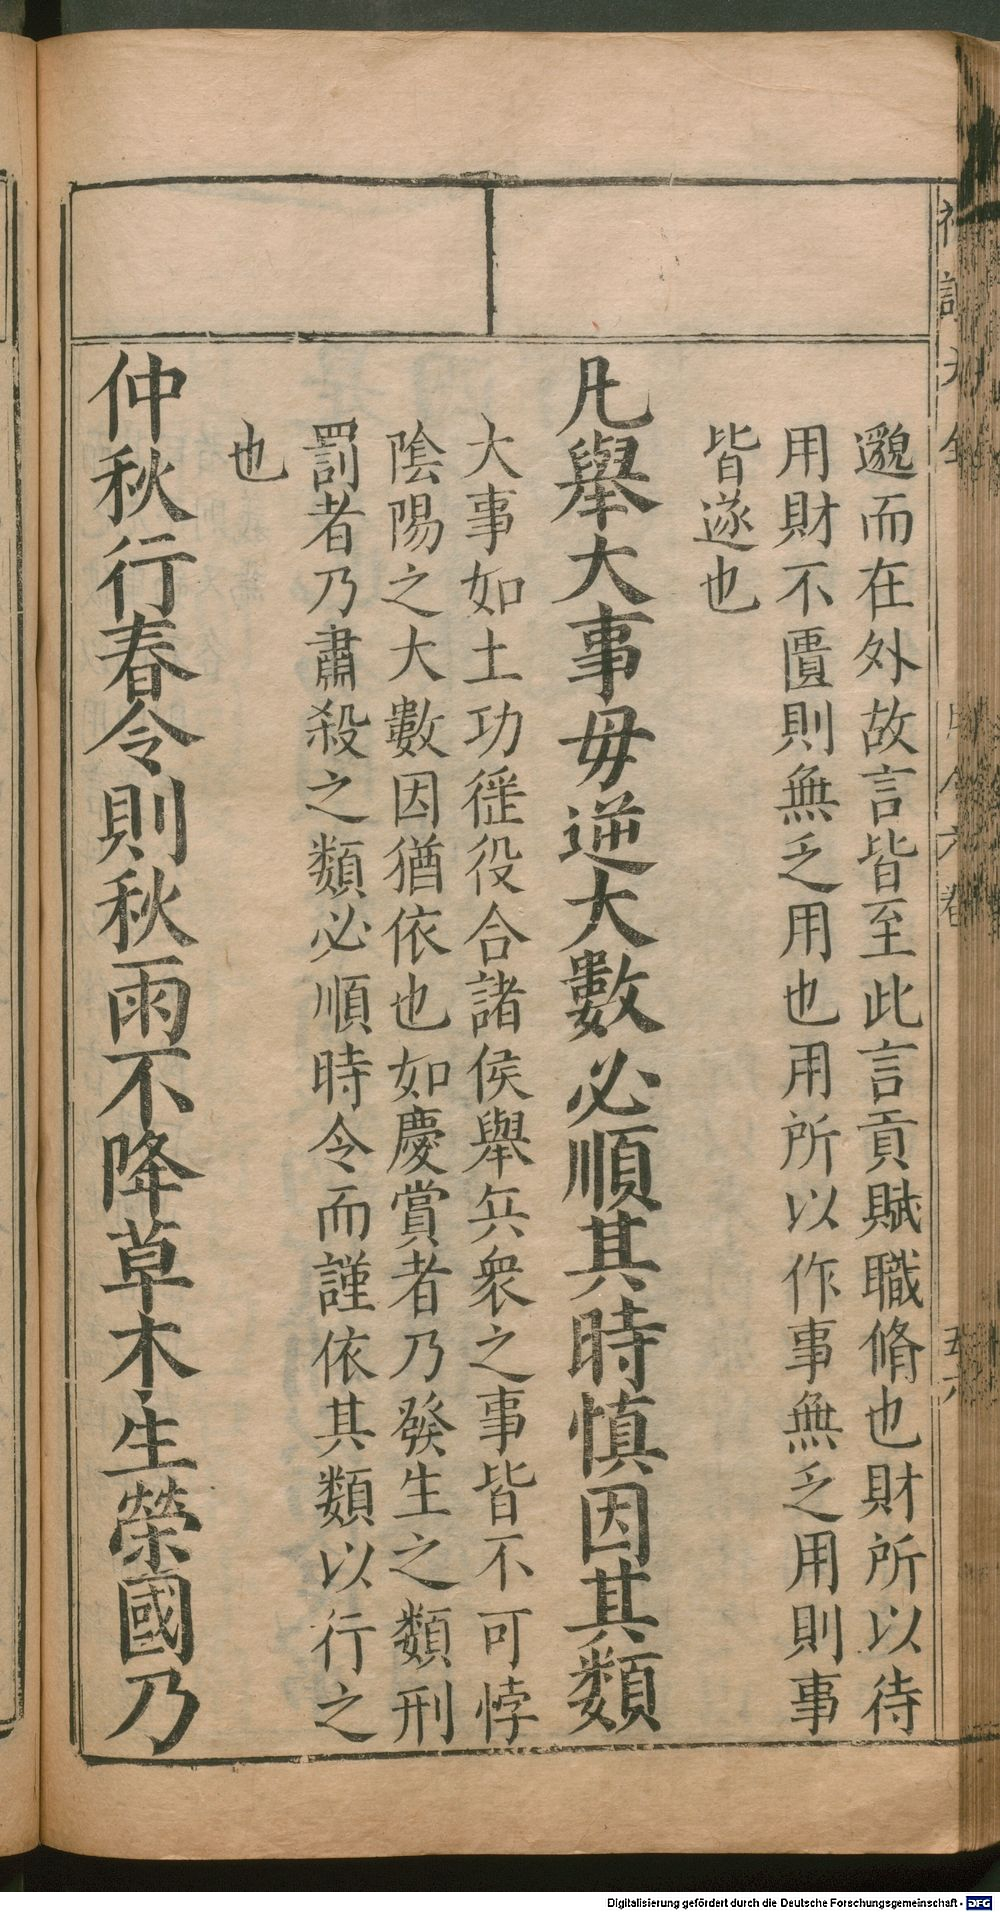 邈而在外故言皆至此言貢賦職脩也財所以待
用財不匱則無乏用也用所以作事無乏用則事
皆遂也
凡舉大事毋逆大數必順其時慎因其類
大事如土功徭役合諸侯舉兵衆之事皆不可悖
陰陽之大數因猶依也如慶賞者乃發生之類刑
罰者乃肅殺之類必順時令而謹依其類以行之
也
仲秋行春令則秋雨不降草木生榮國乃
Digitalisierung gefördert durch die Deutsche Forschungsgemeinschaft - DFG